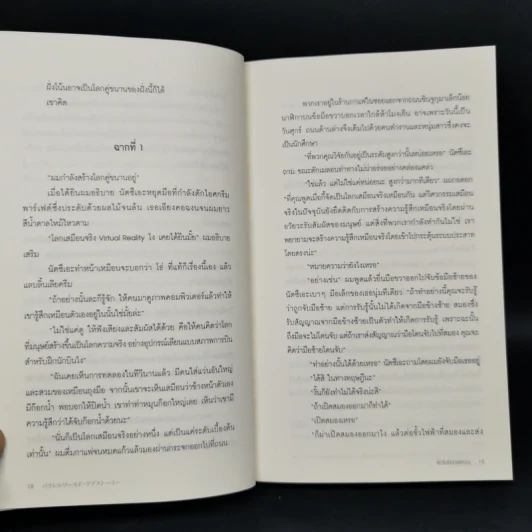 ฝั่งโน้นอาจเป็นโลกคู่ขนานของฝั่งนี้ก็ได้
เขาคิด
ฉากที่ 1
"ผมกำลังสร้างโลกคู่ขนานอยู่"
เมื่อได้ยินผมอธิบาย นัตซึเอะหยุดมือที่กำลังตักไอศกรีม
พาร์เฟต์ซึ่งประดับด้วยผลไม้จนล้น เธอเอียงคอฉงนจนผมยาว
สีน้ำตาลไหม้ไหวตาม
"โลกเสมือนจริง Virtual Reality ไง เคยได้ยินมั้ย" ผมอธิบาย
เสริม
นัตซึเอะทำหน้าเหมือนจะบอกว่า โธ่ ที่แท้ก็เรื่องนี้เอง แล้ว
แลบลิ้นเลียครีม
"ถ้าอย่างนั้นละก็รู้จัก ให้คนมาดูภาพคอมพิวเตอร์แล้วทำให้
เขารู้สึกเหมือนตัวเองอยู่ในนั้นใช่มั้ย"
"ไม่ใช่แค่ดู ให้ฟังเสียงและสัมผัสได้ด้วย คือให้คนคิดว่าโลก
ที่มนุษย์สร้างขึ้นเป็นโลกความจริง อย่างอุปกรณ์เลียนแบบสภาพการบิน
สำหรับฝึกนักบินไง"
"ฉันเคยเห็นการทดลองในทีวีนานแล้ว มีคนใส่แว่นอันใหญ่
และสวมของเหมือนถุงมือ จากนั้นเขาจะเห็นเสมือนว่าข้างหน้าตัวเอง
มีก๊อกน้ำ พอบอกให้ปิดน้ำ เขาทำท่าหมุนก๊อกใหญ่เลย เห็นว่าเขามี
ความรู้สึกว่าได้จับก๊อกน้ำด้วยนะ"
"นั่นก็เป็นโลกเสมือนจริงอย่างหนึ่ง แต่เป็นแค่ระดับเบื้องต้น
เท่านั้น" ผมดื่มกาแฟจนหมดแก้วแล้วมองผ่านกระจกออกไปที่ถนน
18
พวกเราอยู่ในร้านกาแฟในซอยแยกจากถนนชินจูกุมาเล็กน้อย
นาฬิกาบนข้อมือขวาบอกเวลาใกล้ห้าโมงเย็น อาจเพราะวันนี้เป็น
วันศุกร์ ถนนด้านล่างจึงเต็มไปด้วยคนทำงานและหนุ่มสาวซึ่งคงจะ
เป็นนักศึกษา
"ที่พวกคุณวิจัยกันอยู่เป็นระดับสูงกว่านั้นหน่อยเหรอ" นัตซึเอะ
ถาม ขณะตักเมลอนท่าทางไม่น่าอร่อยอย่างคล่องแคล่ว
"ใช่แล้ว แต่ไม่ใช่แค่หน่อยนะ สูงกว่ามากทีเดียว" ผมกอดอก
"ที่คุณพูดเมื่อกี้จัดเป็นโลกเสมือนจริงเหมือนกัน แต่วิศวกรรมเสมือน
จริงในปัจจุบันยังยึดติดกับการสร้างความรู้สึกเหมือนจริงโดยผ่าน
อวัยวะรับสัมผัสของมนุษย์ แต่สิ่งที่พวกเรากำลังทำกันไม่ใช่ เรา
พยายามจะสร้างความรู้สึกเหมือนจริงโดยเข้าไปกระตุ้นระบบประสาท
โดยตรงน่ะ"
"หมายความว่ายังไงเหรอ"
"อย่างเช่น" ผมพูดแล้วยื่นมือขวาออกไปจับข้อมือซ้ายของ
นัตซึเอะเบาๆ มือเล็กของเธอนุ่มทีเดียว "ถ้าทำอย่างนี้คุณจะรับรู้
ว่าถูกจับมือซ้าย แต่การรับรู้นั้นไม่ได้เกิดจากมือข้างซ้าย สมองซึ่ง
รับสัญญาณจากมือข้างซ้ายเป็นตัวทำให้เกิดการรับรู้ เพราะฉะนั้น
ถึงมือจะไม่โดนจับ แต่ถ้าเราส่งสัญญาณว่ามือโดนจับไปที่สมอง คุณจะ
คิดว่ามือซ้ายโดนจับ"
"ทำอย่างนั้นได้ด้วยเหรอ" นัตซึเอะถามโดยผมยังจับมือเธออยู่
"ได้สิ ในทางทฤษฎีนะ"
"งั้นก็ยังทำไม่ได้จริงน่ะสิ"
"ถ้าเปิดสมองออกมาก็ทำได้"
"เปิดสมองเหรอ"
"ก็ผ่าเปิดสมองออกมาไง แล้วต่อขั้วไฟฟ้าที่สมองและส่ง
19